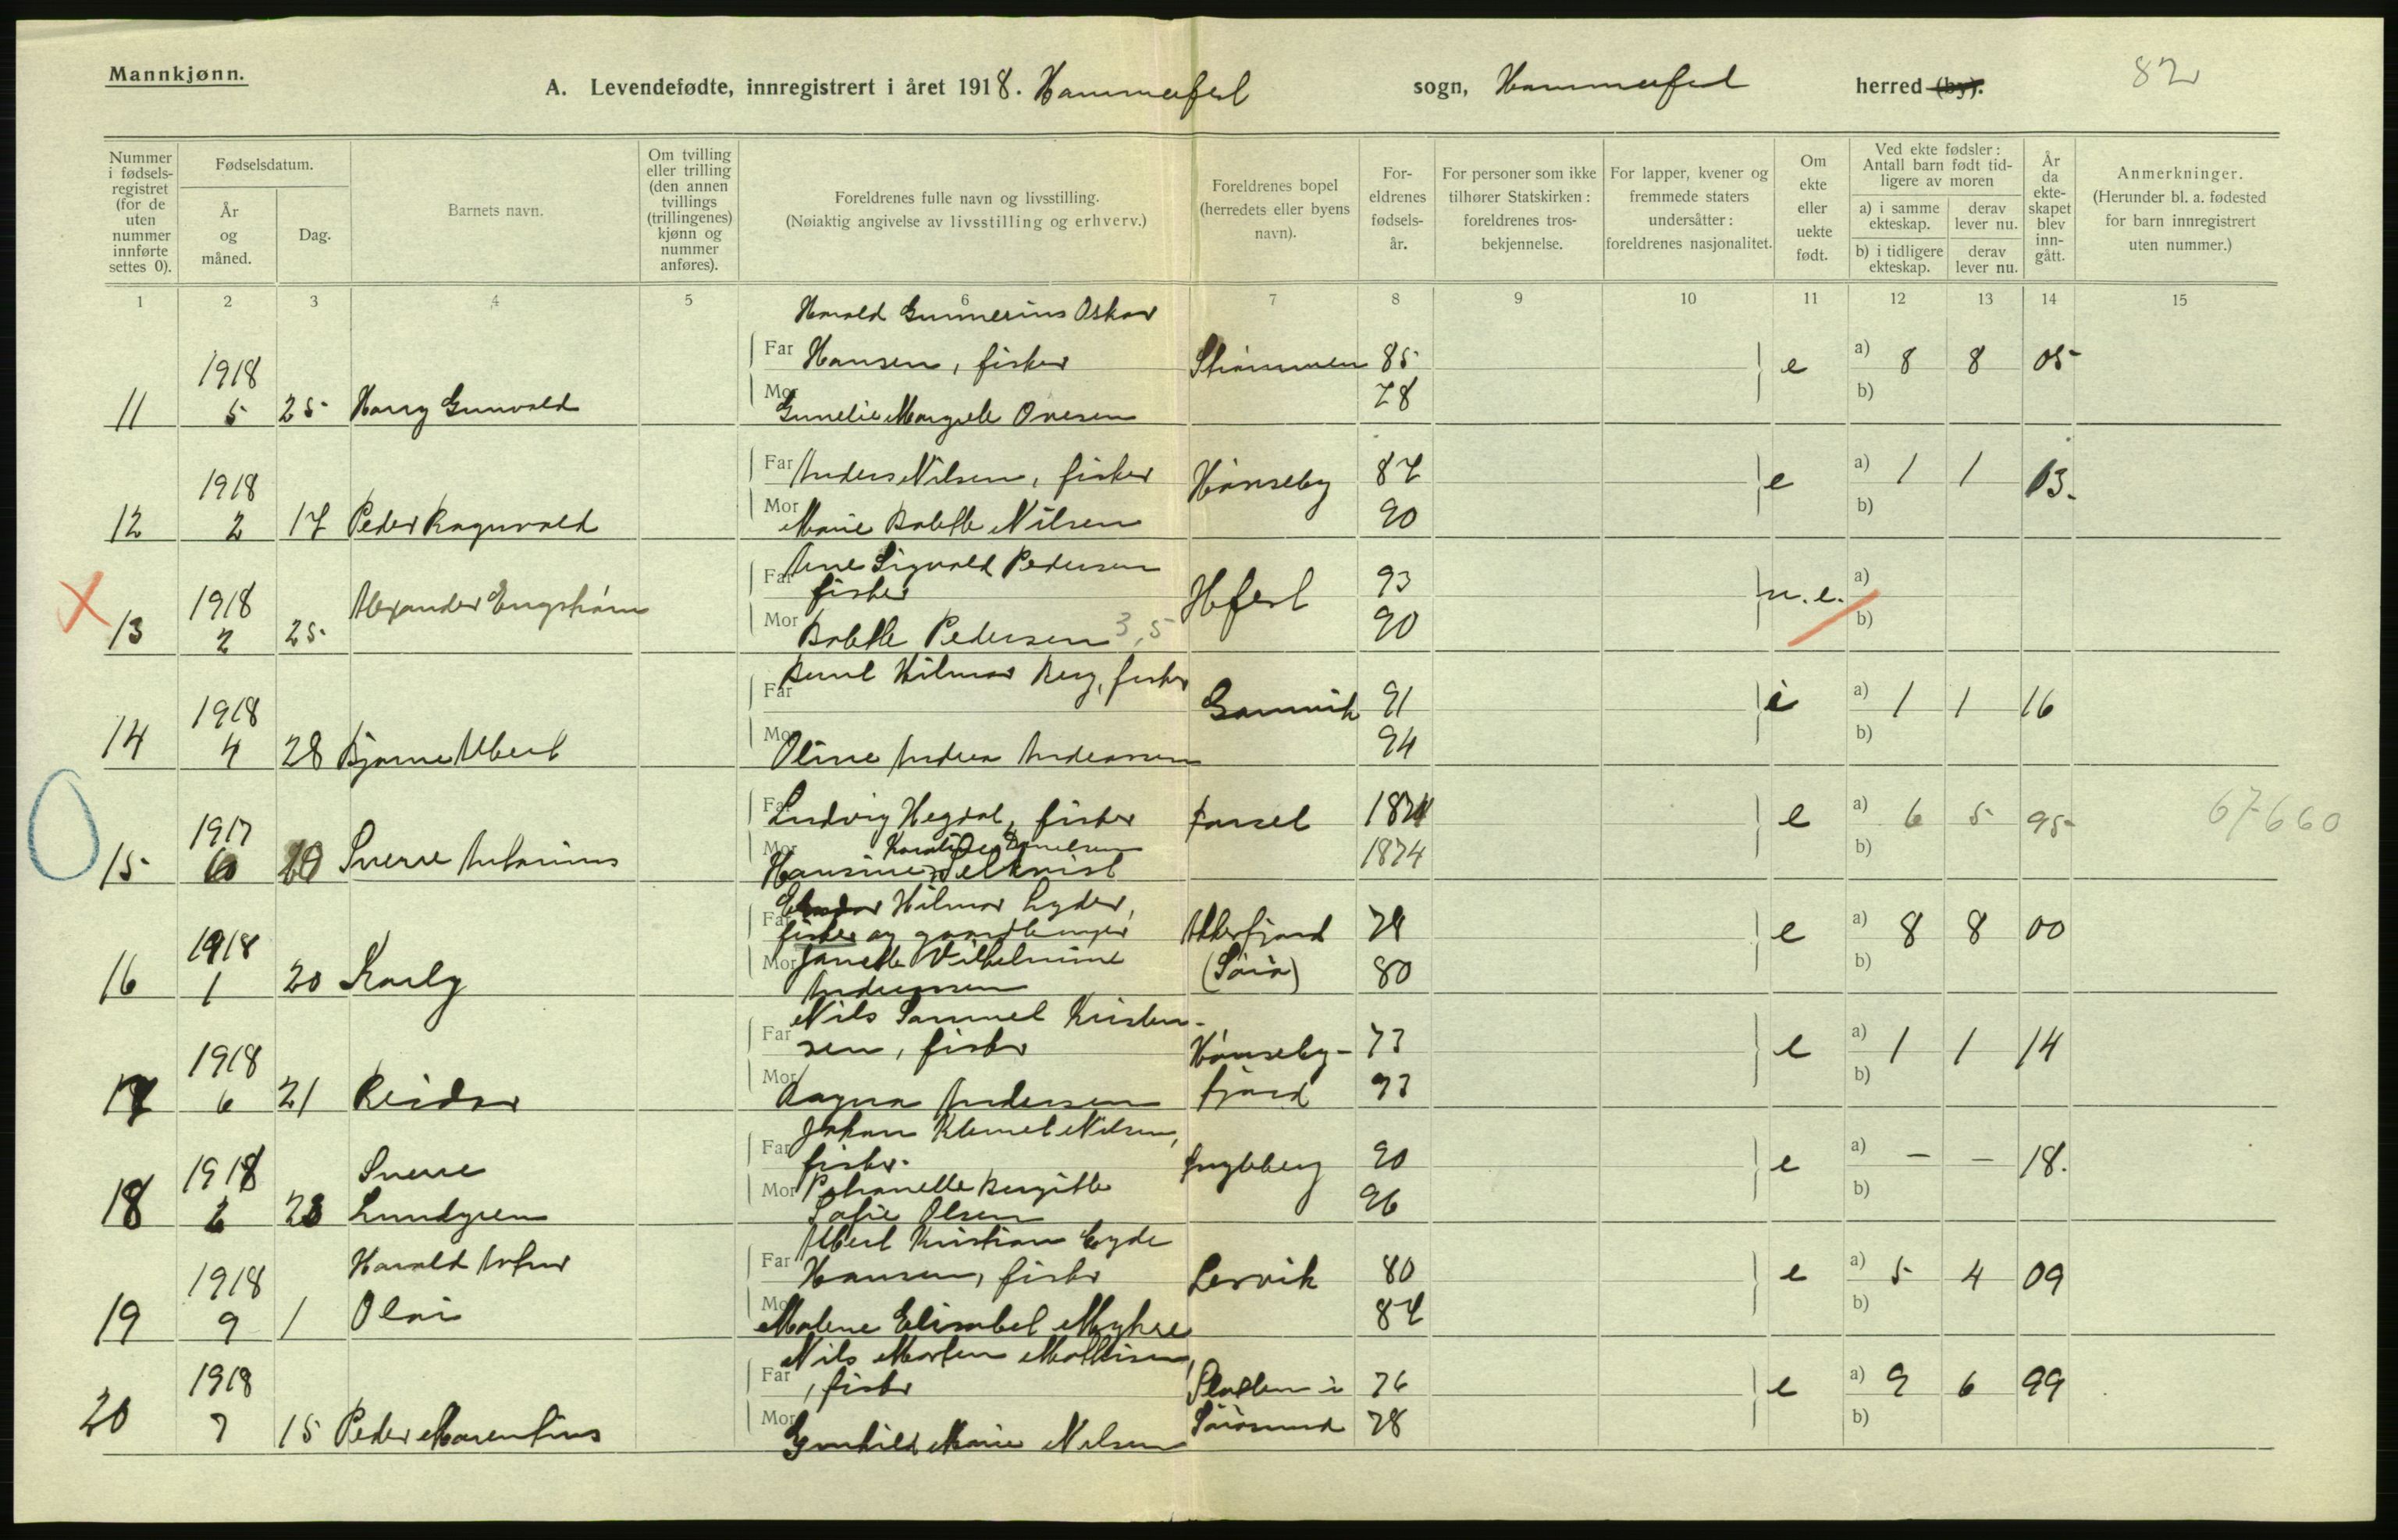 Mannkjønn.
A. Levendefødte, innregistrert i året 1918. Hammerfest sogn, Hammerfest herred (by). 82
Nummer i fødsels-registret (for de uten nummer innførte settes 0).
Fødselsdatum.
År og måned.
Dag.
Barnets navn.
Om tvilling eller trilling (den annen tvillings (trillingenes) kjønn og nummer anføres).
Foreldrenes fulle navn og livsstilling.
(Nøiaktig angivelse av livsstilling og erhverv.)
Foreldrenes bopel (herredets eller byens navn).
For-eldrenes fødsels-år.
For personer som ikke tilhører Statskirken: foreldrenes tros-bekjennelse.
For lapper, kvener og fremmede staters undersåtter: foreldrenes nasjonalitet.
Om ekte eller uekte født.
Ved ekte fødsler: Antall barn født tid-ligere av moren
a) i samme ekteskap.
derav lever nu.
b) i tidligere ekteskap.
derav lever nu.
År da ekte-skapet blev inn-gått.
Anmerkninger.
(Herunder bl. a. fødested for barn innregistrert uten nummer.)
1 2 3 4 5 6 7 8 9 10 11 12 13 14 15
Harald Gunnerius Oskar
Far Hansen, fisker Strømmen 85 e a) 8 8 05
1918
Mor 78 b)
11 5 25 Harry Gunvald Gunelie Margrele Onesen
Far Anders Nilsen, fisker Hønseby 87 e a) 1 1 13.
1918
Mor b)
12 2 17 Peder Ragnvald Marie Bolette Nilsen 90
Arne Sigvald Pedersen
Far fisker Hfest 93 u.e. a)
1918 Alexander Engstrøm
Mor b)
13 2 25 Bolette Pedersen 3,5 90
Bernt Hilmar Berg, fisker
Far Gamvik 91 e a) 1 1 16
1918
Mor b)
14 4 28 Bjarne Albert Oline Andrea Andreassen 94
Far Ludvig Hegdal, fisker 1871 e a) 6 5 95 67660
1917
Mor 1874 b)
15 Sverre Antonius Hansine
Hilmar Lyder,
Far fisker og gaardbruger Akkerfjord 78 e a) 8 8 00
1918
Mor Janette Vilhelmine (Sørø) 80 b)
16 1 20 Karly Andreassen
Nils Samuel Kristen-
Far sen, fisker Hønseby- 73 e a) 1 1 14
1918
Mor b)
17 6 21 Reidar Ragna Andersen fjord 93
Johan Klemet Nilsen,
Far fisker. 90 e a) — — 18.
1918 Sverre
Mor Petranelle Bergitte b)
18 2 23 Lundgren Sofie Olsen 96
Albert Kristian Eyde
Far Hansen, fisker Lervik 80 e a) 5 4 09
1918 Harald Arthur
Mor b)
19 9 1 Olai Malene Elisabet Myhre 87
Nils Morten Mathisen,
Far , fisker i 76 e a) 9 6 99
1918
Mor Sørøsund 78 b)
20 7 15 Peder Marentius Gunhild Marie Nilsen